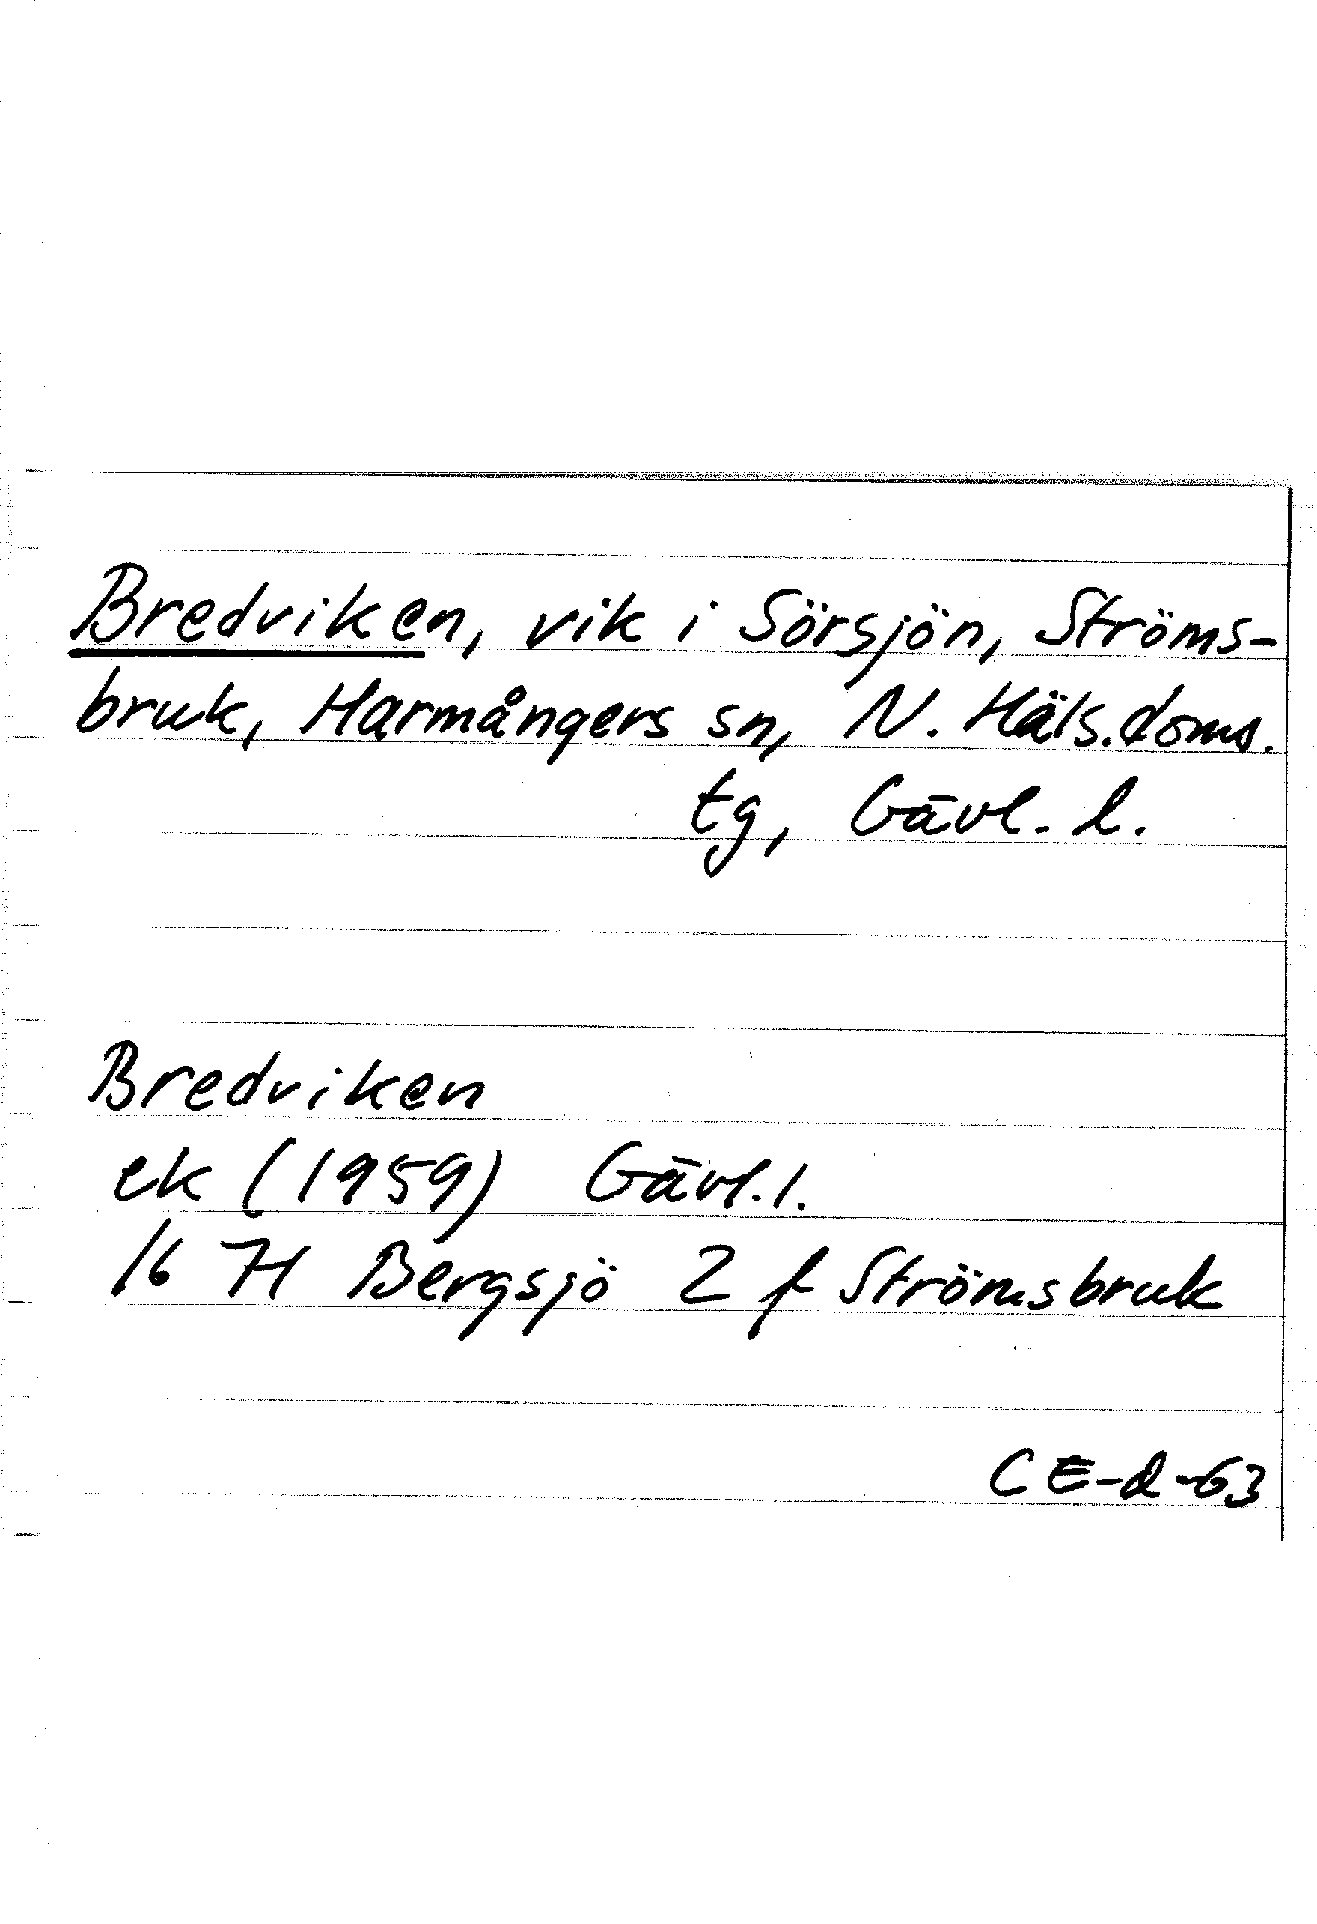 Bredviken, vik i Sörsjön, Ströms-
bruk, Harmångers sn, N. Häls. doms.
tg, Gävl. l.
Bredviken
ek (1959) Gävl. l.
16 H Bergsjö 2 f Strömsbruk
CE-d-63